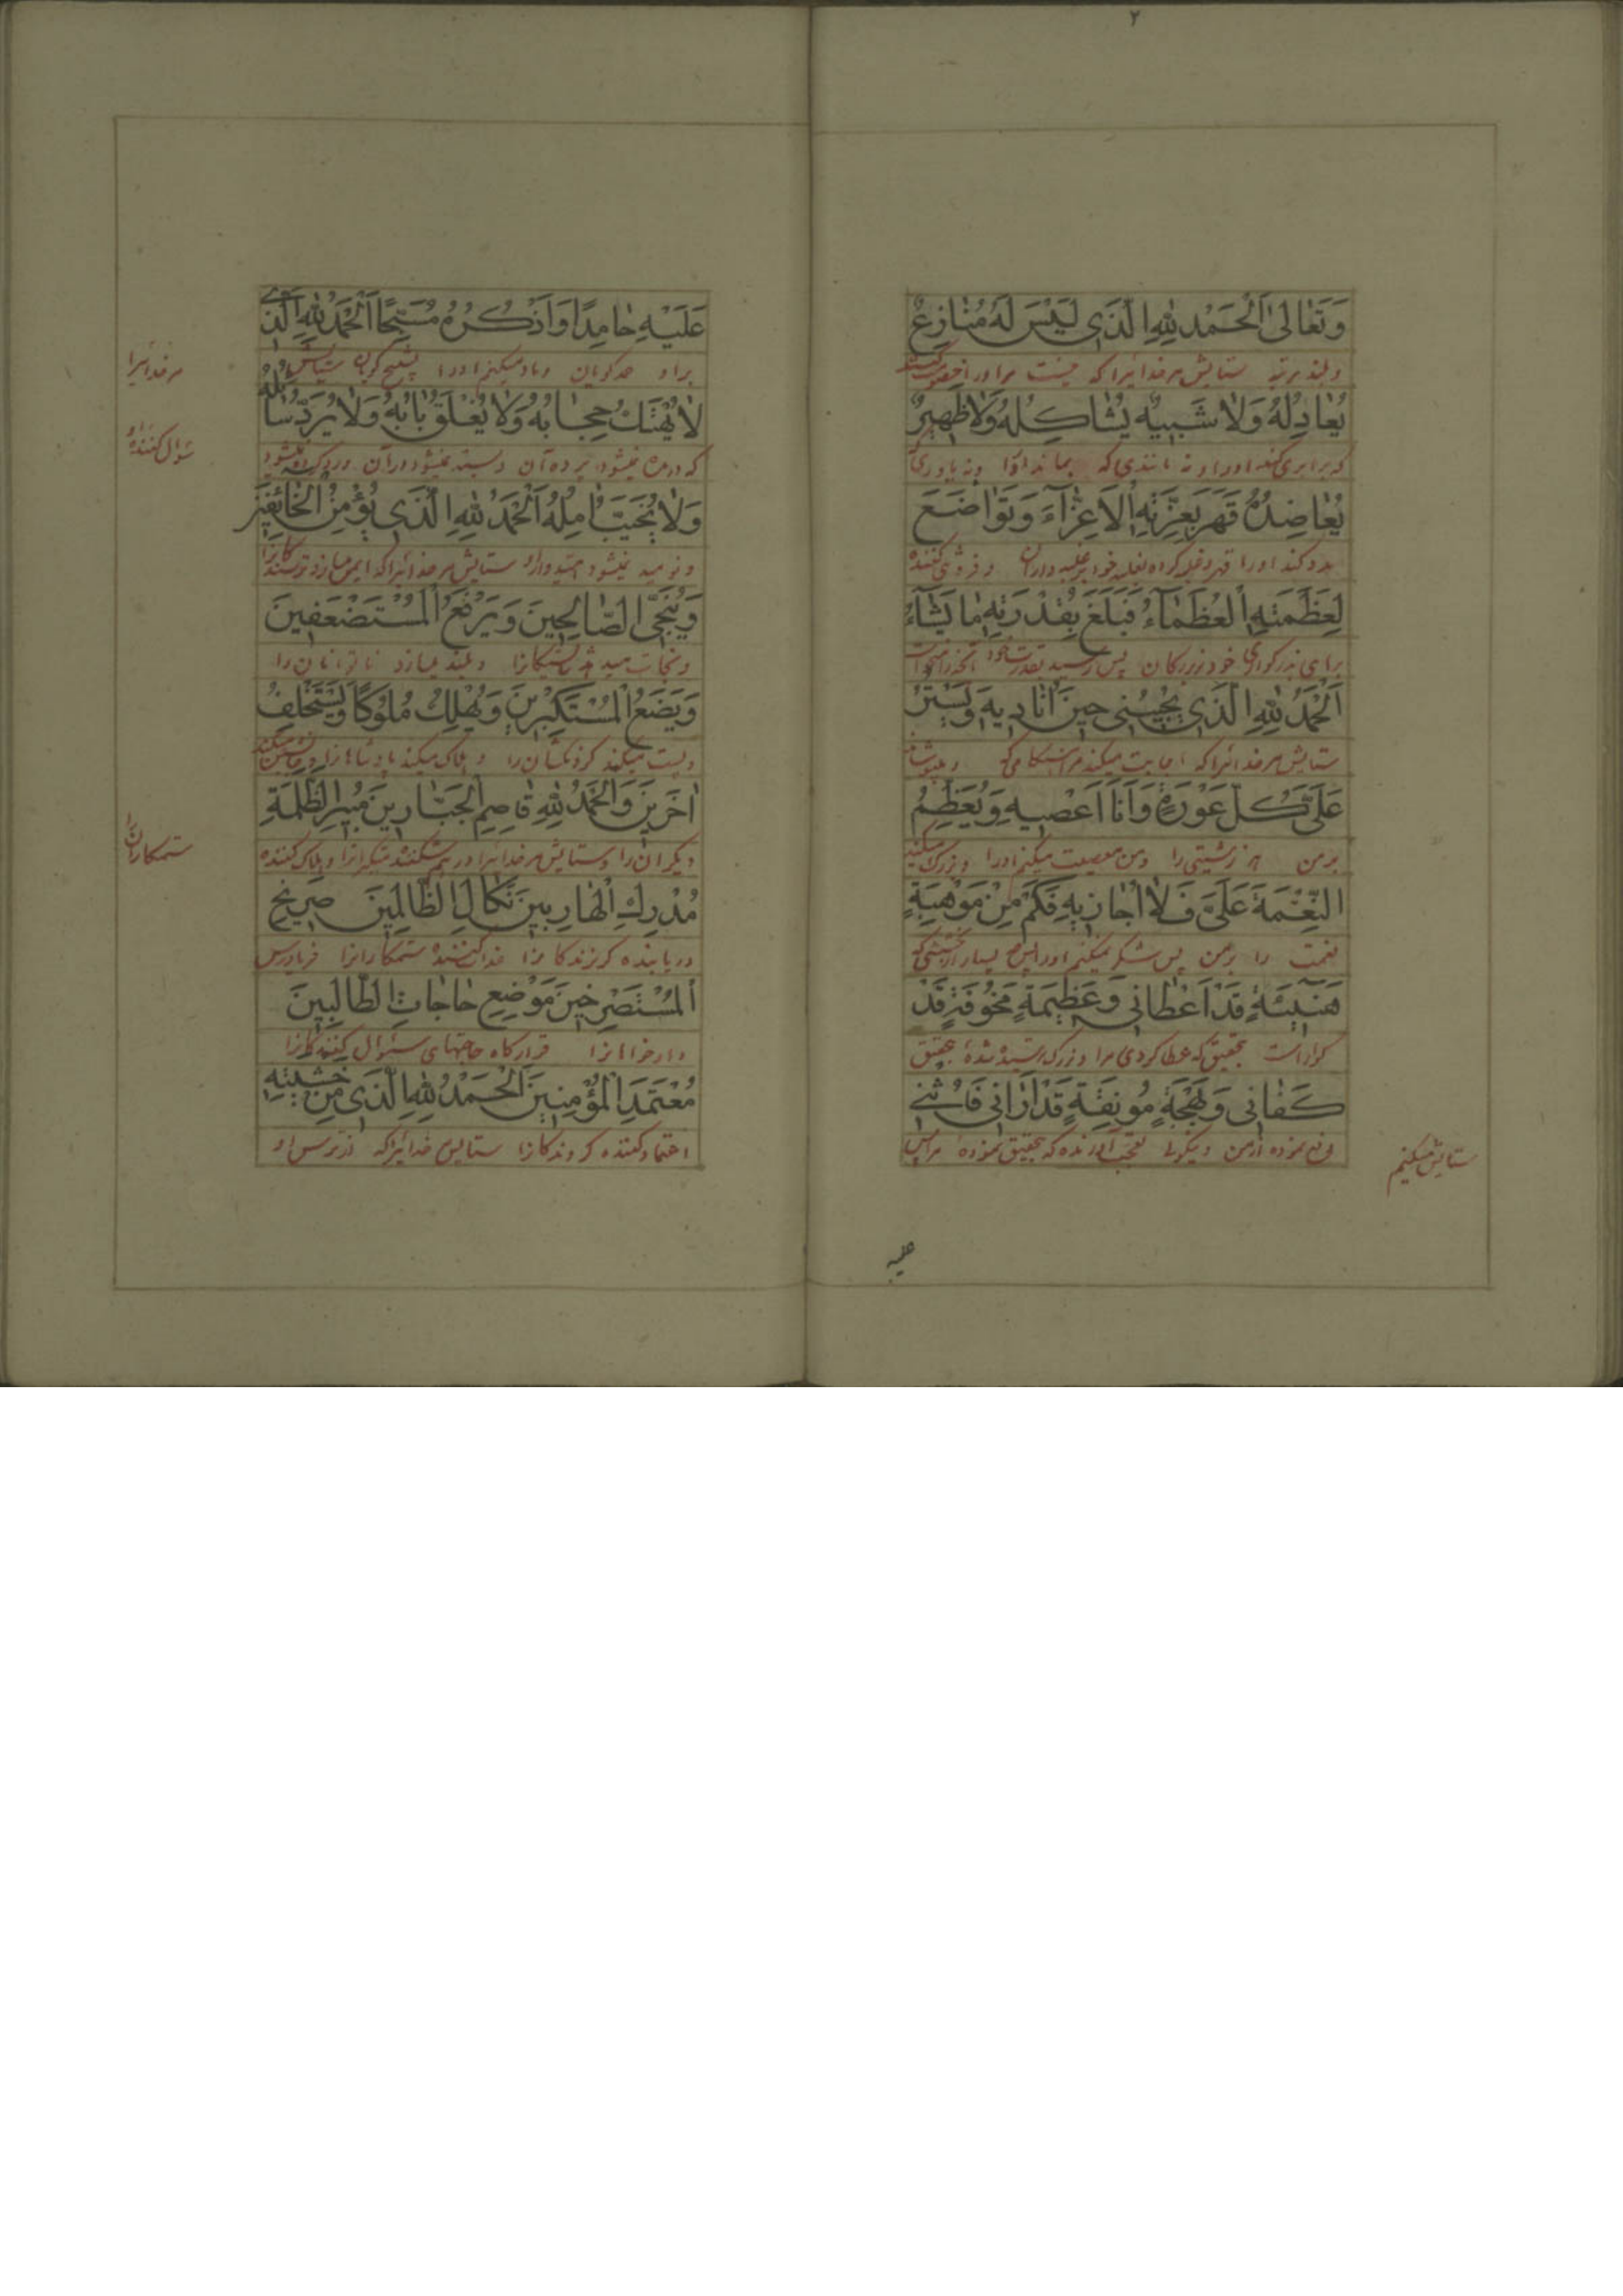 ٢
وَتَعَالىٰ اَلْحَمْدُ لِلّٰهِ الَّذَى لَيْسَ لَهُ مُنٰازِعٌ
وبلند مرتبه ستایش مر خدائیرا که نیست مر او را
يُعٰادِلُهُ وَلاٰ شَبيٖهٌ يُشٰاكِلُهُ وَلاٰ ظَهيٖرٌ
که برابری کند او را و نه مانندی که بماند او را و نه یاوری که
يُعٰاضِدُهُ قَهَرَ بِعِزَّتِهِ الْاَعِزّٰآءَ وَتَوٰاضَعَ
مدد کند او را
لِعَظَمَتِهِ الْعُظَمٰآءُ فَبَلَغَ بِقُدْرَتِهِ مٰا يَشٰآءُ
برای بزرگواری خود بزرگان پس رسید بقدرت خود
اَلْحَمْدُ لِلّٰهِ الَّذَى يُجيٖبُنى حيٖنَ اُنٰاديٖهِ وَيَسْتُرُ
ستایش مر خدائیرا که اجابت میکند مرا
عَلَىَّ كُلَّ عَوْرَةٍ وَاَنَا اَعْصيٖهِ وَيُعَظِّمُ
بر من هر زشتی را و من معصیت میکنم او را و بزرگ میکند
النِّعْمَةَ عَلَىَّ فَلاٰ اُجٰازيٖهِ فَكَمْ مِنْ مَوْهِبَةٍ
نعمت را بر من پس شکر نمیکنم او را پس بسیار
هَنيٖئَةٍ قَدْ اَعْطٰانى وَعَظيٖمَةٍ مَخُوفَةٍ قَدْ
گواراست بتحقیق که عطا کردی مرا و بزرگ
كَفٰانى وَبَهْجَةٍ مُونِقَةٍ قَدْ اَرٰانى فَاُثْنى
ستایش میکنم
علیه
عَلَيْهِ حٰامِدًا وَاَذْكُرُهُ مُسَبِّحًا اَلْحَمْدُ لِلّٰهِ الَّذى
بر او حمد گویان و یاد میکنم او را تسبیح گویان ستایش
مر خدائیرا
لاٰ يُهْتَكُ حِجٰابُهُ وَلاٰ يُغْلَقُ بٰابُهُ وَلاٰ يُرَدُّ سٰائِلُهُ
که دریده نمیشود پرده آن و بسته نمیشود در آن و رد کرده نمیشود
سؤال کننده او
وَلاٰ يُخَيَّبُ اٰمِلُهُ اَلْحَمْدُ لِلّٰهِ الَّذَى يُؤْمِنُ الْخٰائِفيٖنَ
و نومید نمیشود امیدوار او ستایش مر خدائیرا که ایمن میسازد ترسندگانرا
وَيُنَجِّى الصّٰالِحيٖنَ وَيَرْفَعُ الْمُسْتَضْعَفيٖنَ
و نجات میدهد نیکانرا و بلند میسازد ناتوانان را
وَيَضَعُ الْمُسْتَكْبِريٖنَ وَيُهْلِكُ مُلُوكًا وَيَسْتَخْلِفُ
و پست میکند گردنکشان را و هلاک میکند پادشاهانرا و جانشین میکند
اٰخَريٖنَ وَالْحَمْدُ لِلّٰهِ قٰاصِمِ الْجَبّٰاريٖنَ مُبيٖرِ الظَّلَمَةِ
دیگران را و ستایش مر خدائیرا در هم شکننده متکبرانرا و هلاک کننده
ستمکاران را
مُدْرِكِ الْهٰارِبيٖنَ نَكٰالِ الظّٰالِميٖنَ صَريٖخِ
دریابنده گریزندگانرا عذاب کننده ستمکارانرا فریادرس
اَلْمُسْتَصْرِخيٖنَ مَوْضِعِ حٰاجٰاتِ الطّٰالِبيٖنَ
دادخواهانرا قرارگاه حاجتهای سؤال کنندگانرا
مُعْتَمَدِ الْمُؤْمِنيٖنَ اَلْحَمْدُ لِلّٰهِ الَّذَى مِنْ خَشْيَتِهِ
اعتماد کننده گروندگانرا ستایش خدائیرا که از ترس او